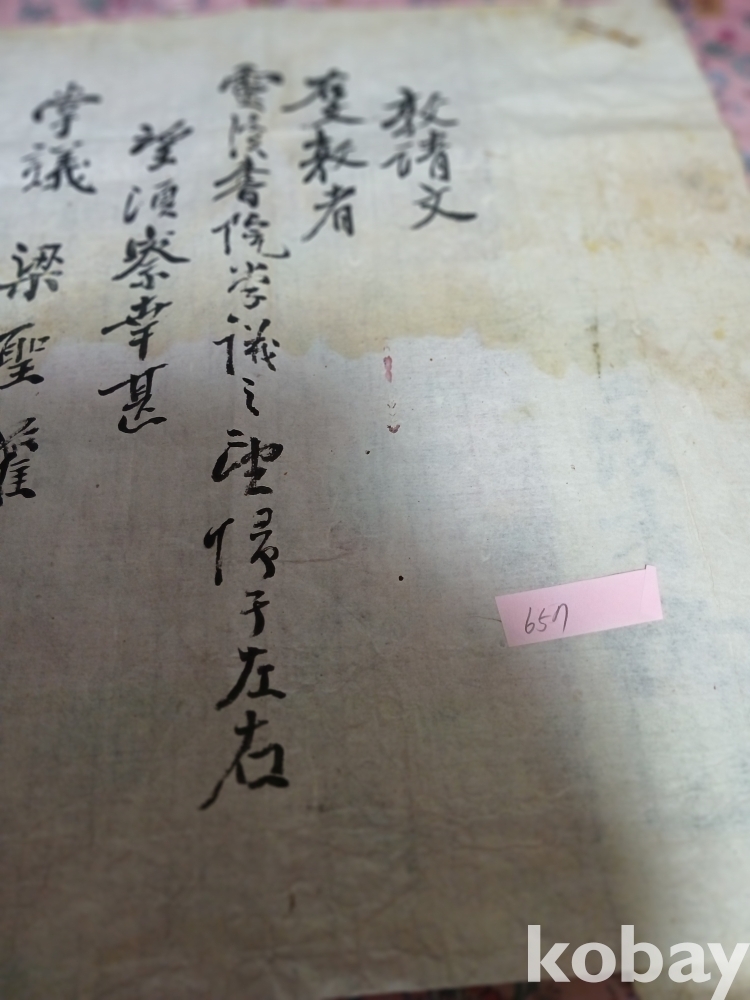 敦請文
右敦者
雲溪書院学議之望帰于左右
望須察幸甚
掌議 梁聖
657
kobay